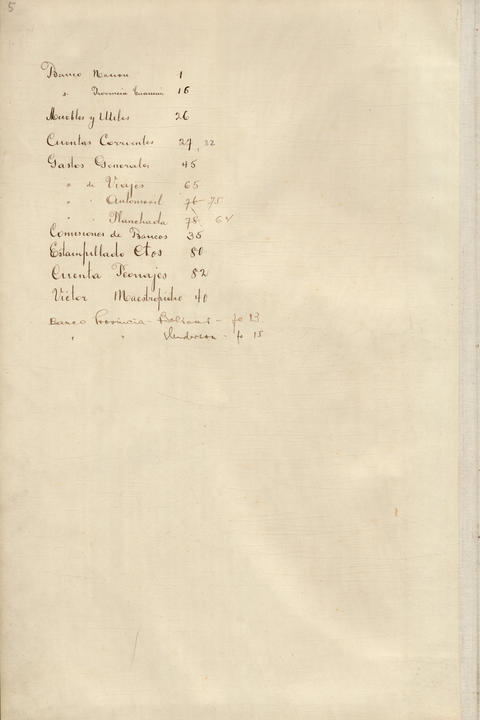 5
Banco Nacion 1
" Provincia 16
Muebles y Utiles 26
Cuentas Corrientes 27, 32
Gastos Generales 45
" de Viajes 65
" " Automovil 76 - 75
" " Planchada 78 64
Comisiones de Bancos 35
Estampillado Ctos 80
Cuenta Peonajes 82
Victor Maestropietro 40
Banco Provincia - Bolivar - fo 13
" " Henderson - fo 15